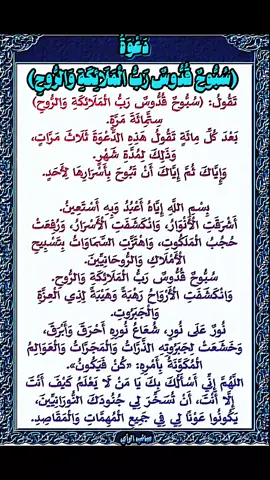 دَعْوَةُ
(سُبُّوحٌ قُدُّوسٌ رَبُّ الْمَلَائِكَةِ وَالرُّوحِ)
تَقُولُ: (سُبُّوحٌ قُدُّوسٌ رَبُّ الْمَلَائِكَةِ وَالرُّوحِ)
سِتُّمِائَةِ مَرَّةٍ.
بَعْدَ كُلِّ مِائَةٍ تَقُولُ هَذِهِ الدَّعْوَةَ ثَلَاثَ مَرَّاتٍ،
وَذَلِكَ لِمُدَّةِ شَهْرٍ.
وَإِيَّاكَ ثُمَّ إِيَّاكَ أَنْ تَبُوحَ بِأَسْرَارِهَا لِأَحَدٍ.
بِسْمِ اللَّهِ إِيَّاهُ أَعْبُدُ وَبِهِ أَسْتَعِينُ.
أَشْرَقَتِ الْأَنْوَارُ، وَانْكَشَفَتِ الْأَسْرَارُ، وَرُفِعَتْ
حُجُبُ الْمَلَكُوتِ، وَاهْتَزَّتِ السَّمَاوَاتُ بِتَسْبِيحِ
الْأَمْلَاكِ وَالرُّوحَانِيِّينَ.
سُبُّوحٌ قُدُّوسٌ رَبُّ الْمَلَائِكَةِ وَالرُّوحِ.
وَانْكَشَفَتِ الْأَرْوَاحُ رَهْبَةً وَهَيْبَةً لِذِي الْعِزَّةِ
وَالْجَبَرُوتِ.
نُورٌ عَلَى نُورٍ، شُعَاعُ نُورِهِ أَحْرَقَ وَأَبْرَقَ،
وَخَشَعَتْ لِجَبَرُوتِهِ الذَّرَّاتُ وَالْمَجَرَّاتُ وَالْعَوَالِمُ
الْمُكَوَّنَةُ بِأَمْرِهِ: «كُنْ فَيَكُونُ».
اللَّهُمَّ إِنِّي أَسْأَلُكَ بِكَ يَا مَنْ لَا يَعْلَمُ كَيْفَ أَنْتَ
إِلَّا أَنْتَ، أَنْ تُسَخِّرَ لِي جُنُودَكَ النُّورَانِيِّينَ،
يَكُونُوا عَوْنًا لِي فِي جَمِيعِ الْمُهِمَّاتِ وَالْمَقَاصِدِ.